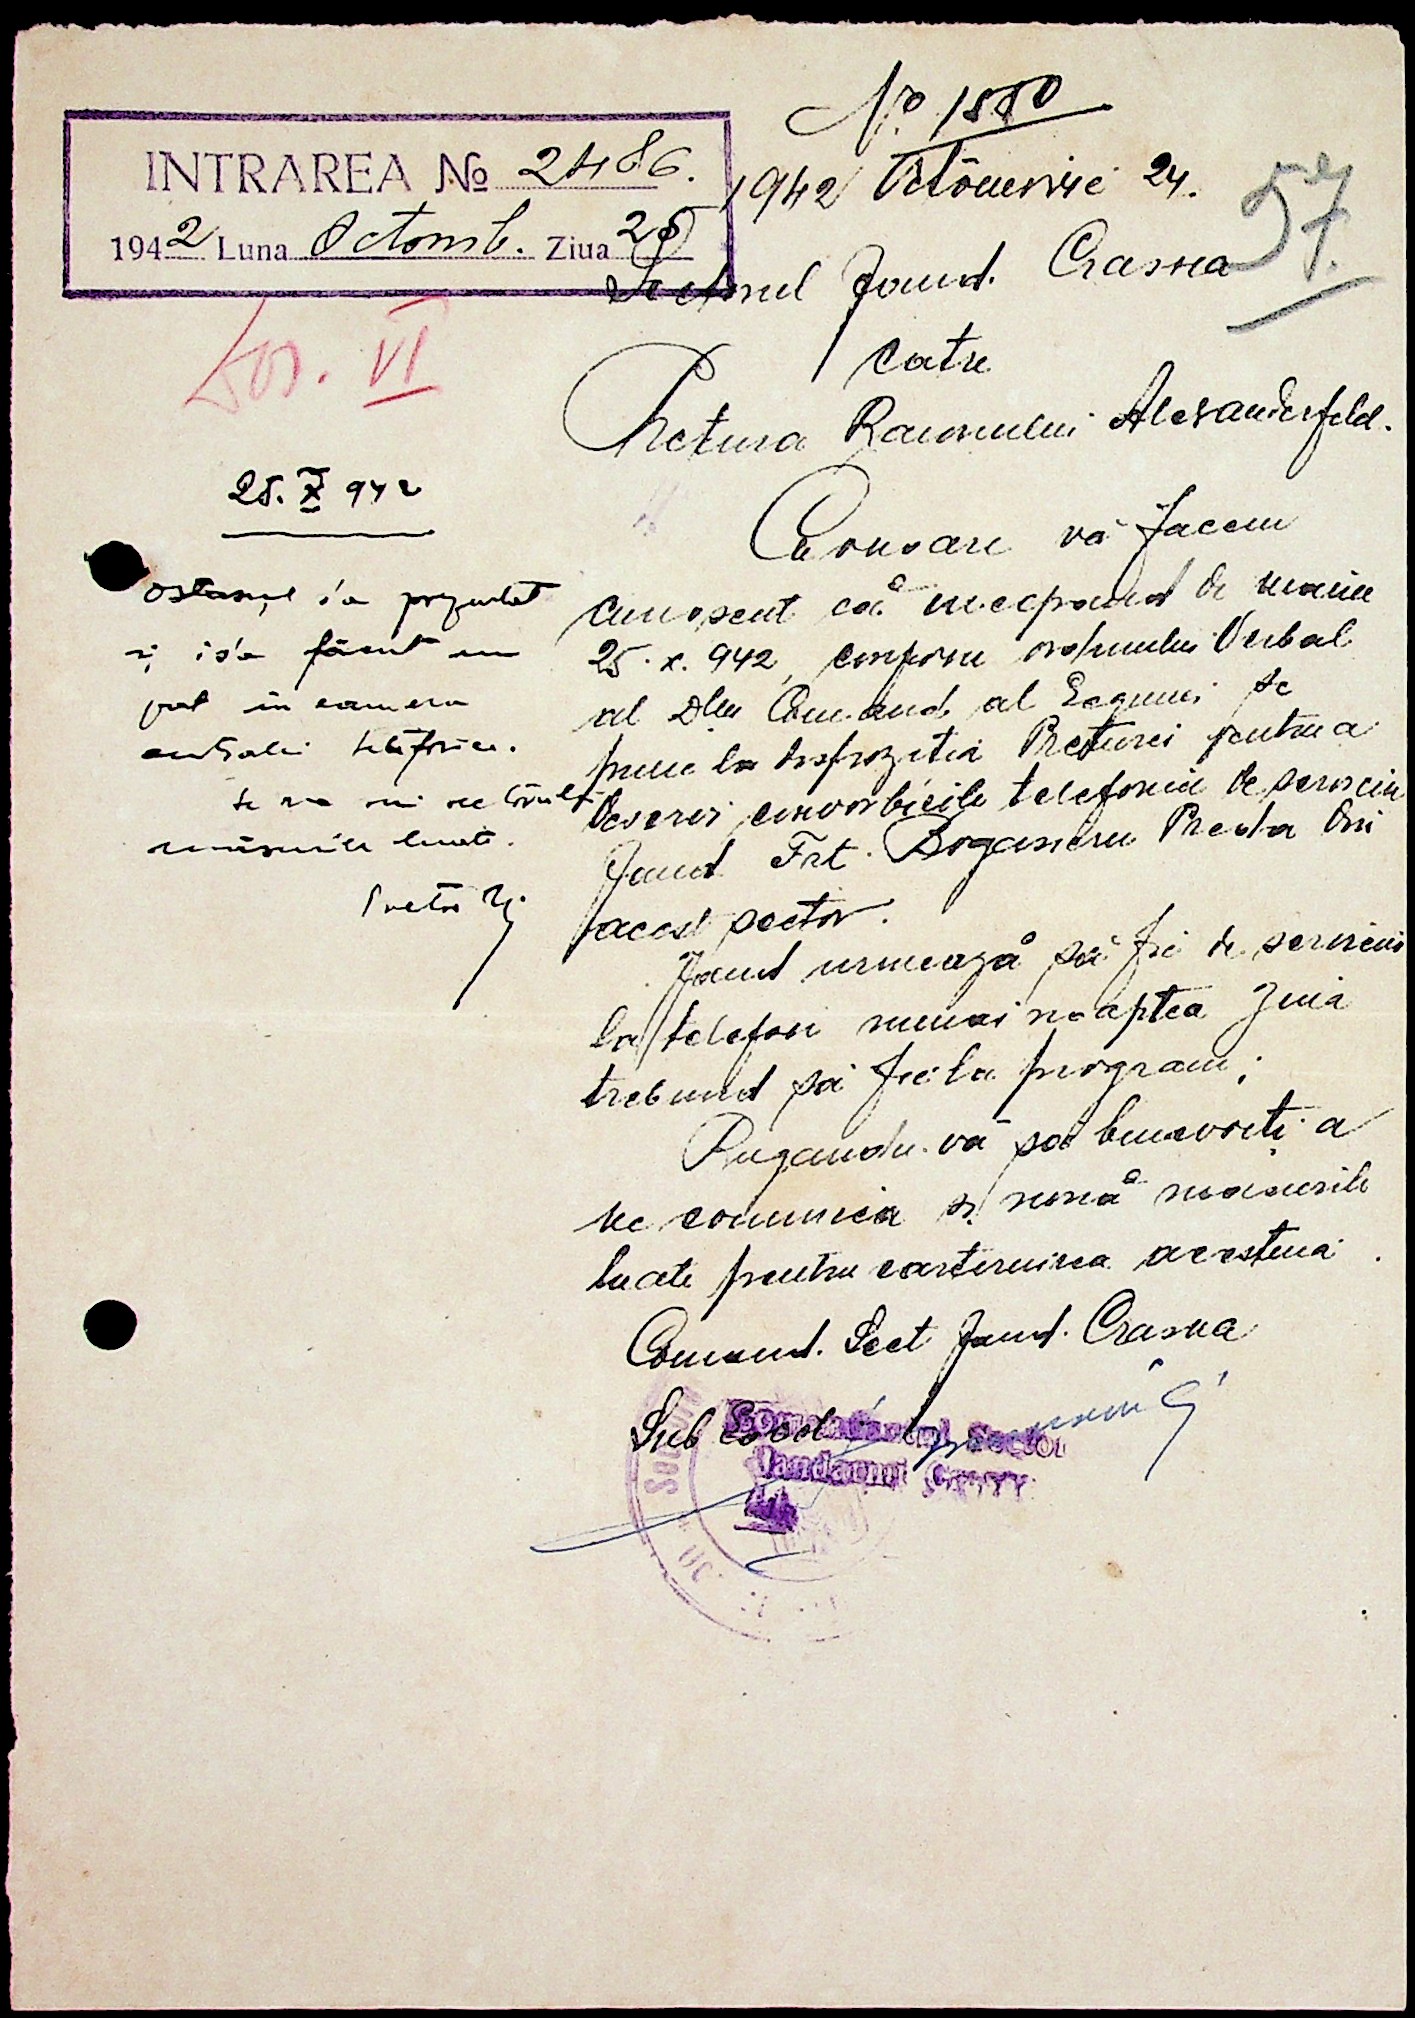 INTRAREA № 2486.
1942 Luna Octomb. Ziua 25
Dos. VI
No. 1580
1942 Octomvrie 24.
57.
Sectorul Jand. Crasna
catre
Pretura Raionului Alexanderfeld.
Cu onoare vă facem
cunoscut că incepand de maine
25.X.942, conform ordinului Verbal
al Dlui Comand. al Legiunei se
pune la dispozitia Preturei pentru a
deservi convorbirile telefonice de serviciu
Jand Frt. Preda din
acest sector.
Jand urmează să fie de serviciu
la telefon numai noaptea ziua
trebuind să fie la program;
Rugandu-vă să binevoiti a
ne comunica si nouă măsurile
luate pentru cartiruirea acestuia.
Comand. Sect Jand. Crasna
Sub
Comandantul Sector
Jandarmi
25.X 942
Ostasul s'a prezentat
și i s'a făcut un
pat in camera
centralei telefonice.
Se va comunica
măsurile luate.
Pretor